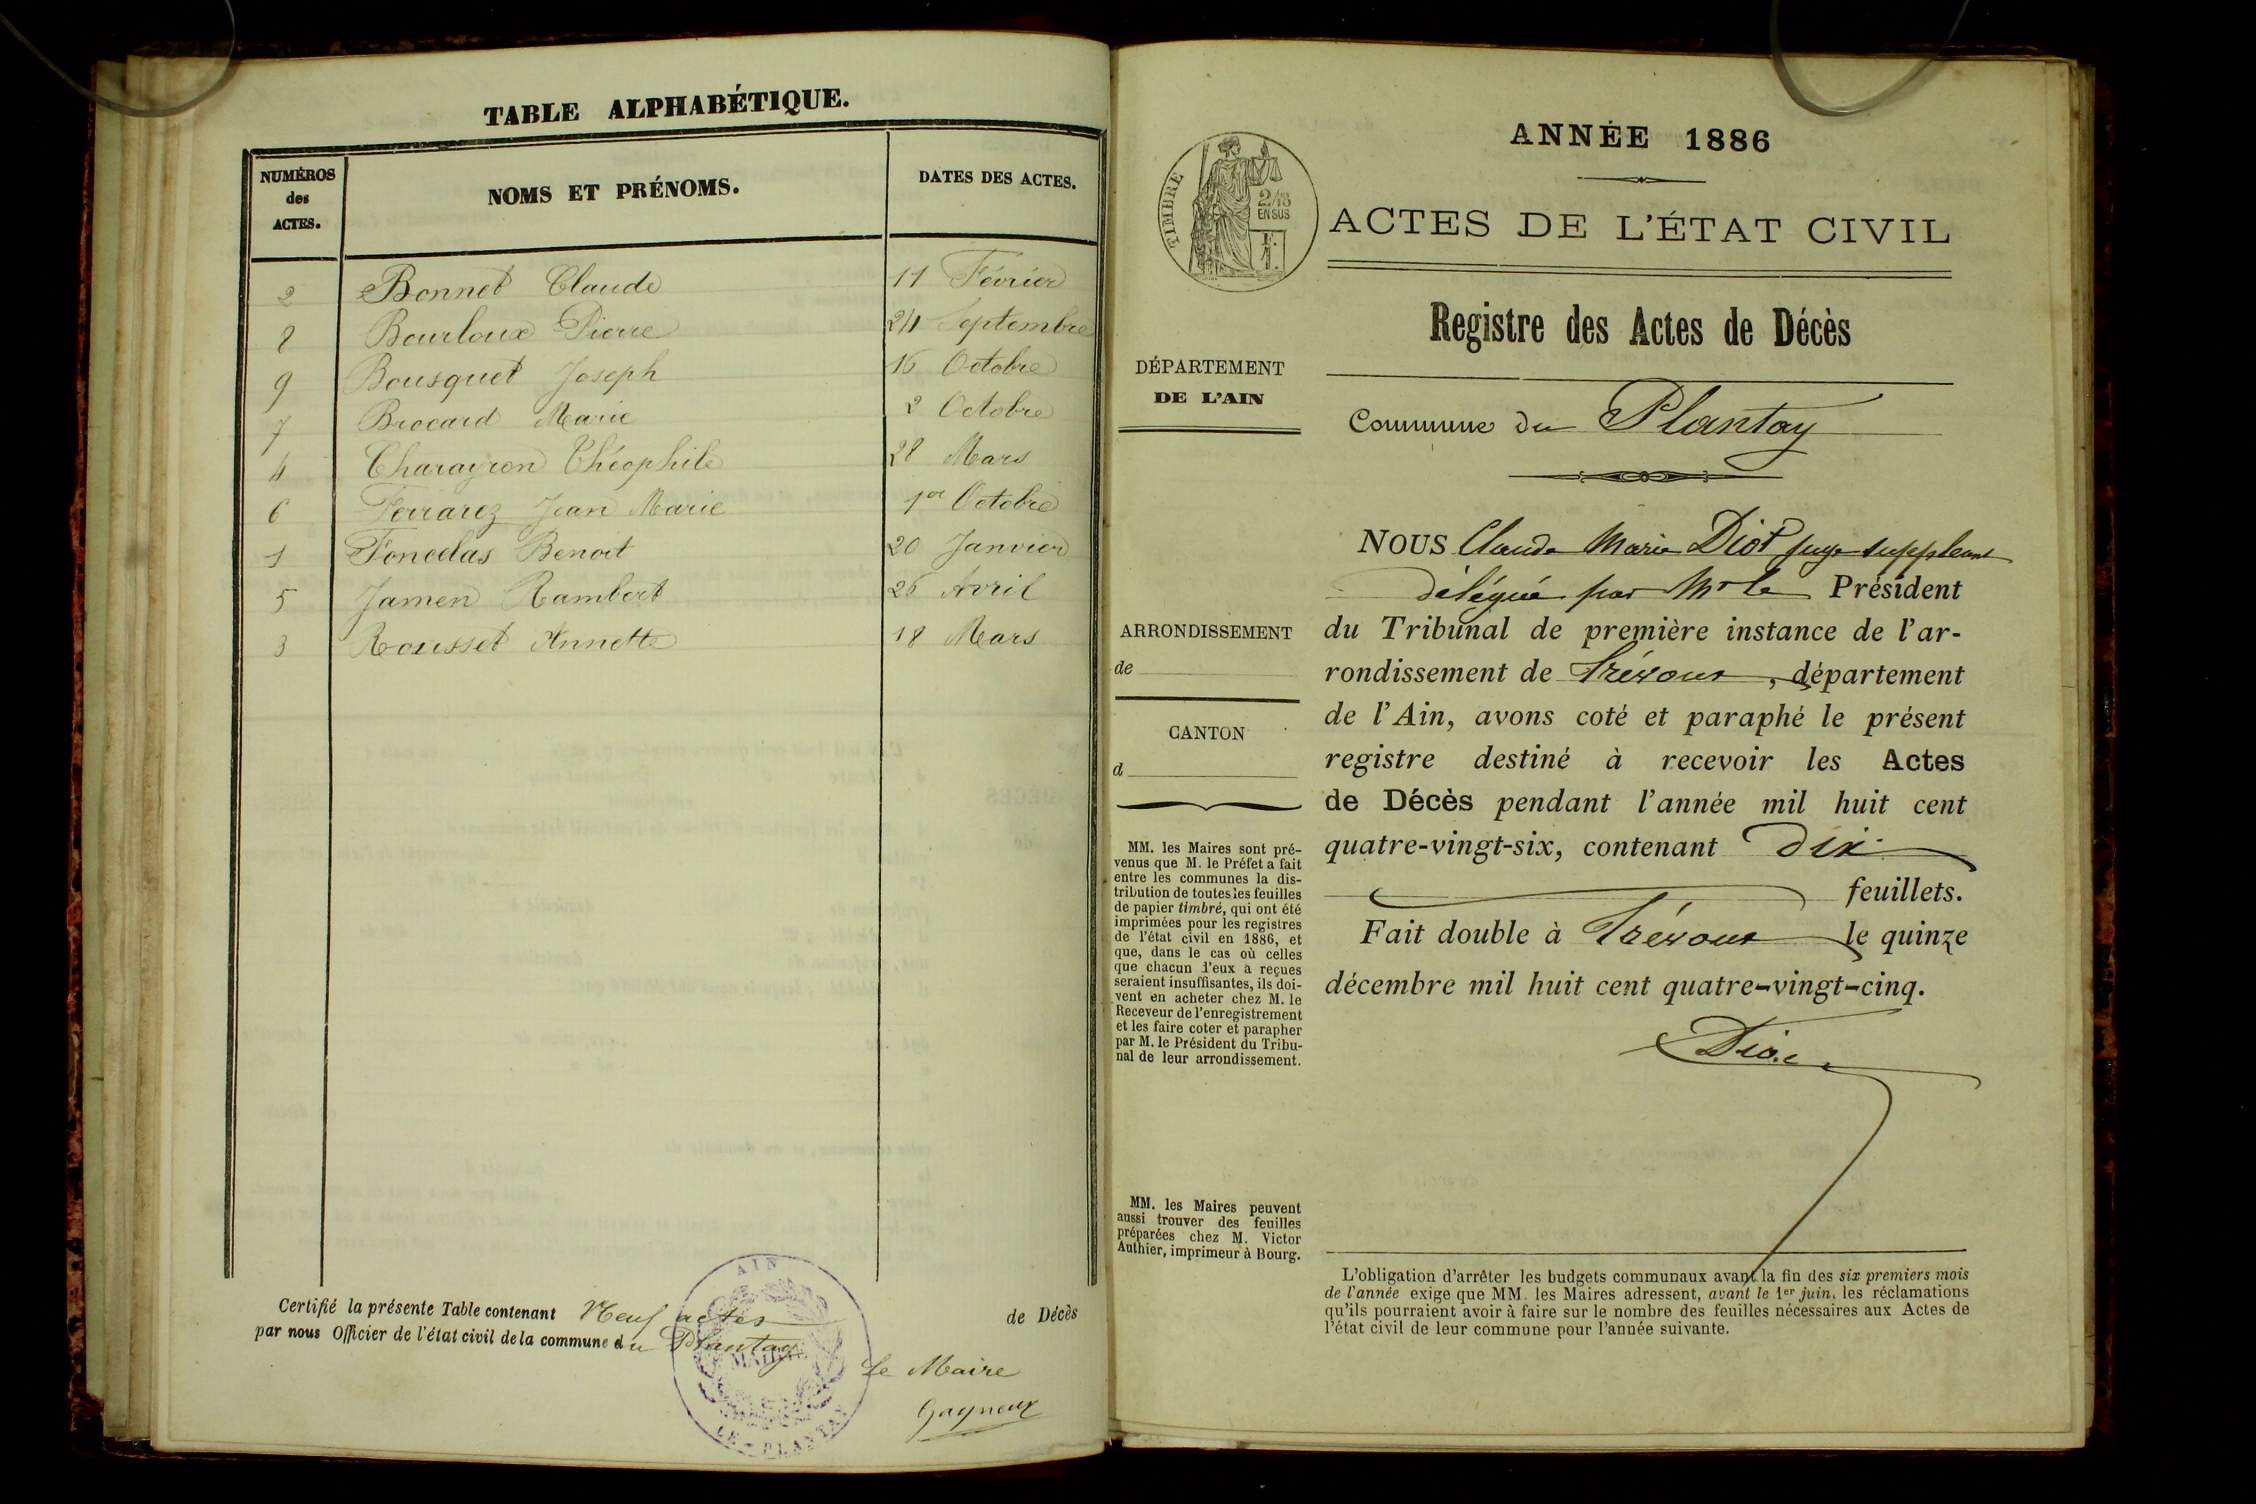 TABLE ALPHABÉTIQUE.
NUMÉROS des ACTES.
NOMS ET PRÉNOMS.
DATES DES ACTES.
2 Bonnet Claude 11 Février
8 Bourloux Pierre 24 Septembre
9 Bousquet Joseph 16 Octobre
7 Brocard Marie 2 Octobre
4 Charayron Théophile 28 Mars
6 Ferrarez Jean Marie 1er Octobre
1 Foncelas Benoit 20 Janvier
5 Jamen Rambert 26 Avril
3 Rousset Annette 18 Mars
Certifié la présente Table contenant Neuf actes de Décès
par nous Officier de l'état civil de la commune du Plantay
Le Maire
Gagneux
AIN
MAIRIE
LE PLANTAY
ANNÉE 1886
TIMBRE
2/10
EN SUS
1 F.
ACTES DE L'ÉTAT CIVIL
Registre des Actes de Décès
DÉPARTEMENT
DE L'AIN
Commune du Plantay
NOUS Claude Marie Diot juge suppleant
délégué par Mr le Président
du Tribunal de première instance de l'ar-
rondissement de Trévoux, département
de l'Ain, avons coté et paraphé le présent
registre destiné à recevoir les Actes
de Décès pendant l'année mil huit cent
quatre-vingt-six, contenant dix
feuillets.
Fait double à Trévoux le quinze
décembre mil huit cent quatre-vingt-cinq.
ARRONDISSEMENT
de
CANTON
d
MM. les Maires sont pré-
venus que M. le Préfet a fait
entre les communes la dis-
tribution de toutes les feuilles
de papier timbré, qui ont été
imprimées pour les registres
de l'état civil en 1886, et
que, dans le cas où celles
que chacun d'eux a reçues
seraient insuffisantes, ils doi-
vent en acheter chez M. le
Receveur de l'enregistrement
et les faire coter et parapher
par M. le Président du Tribu-
nal de leur arrondissement.
MM. les Maires peuvent
aussi trouver des feuilles
préparées chez M. Victor
Authier, imprimeur à Bourg.
L'obligation d'arrêter les budgets communaux avant la fin des six premiers mois
de l'année exige que MM. les Maires adressent, avant le 1er juin, les réclamations
qu'ils pourraient avoir à faire sur le nombre des feuilles nécessaires aux Actes de
l'état civil de leur commune pour l'année suivante.